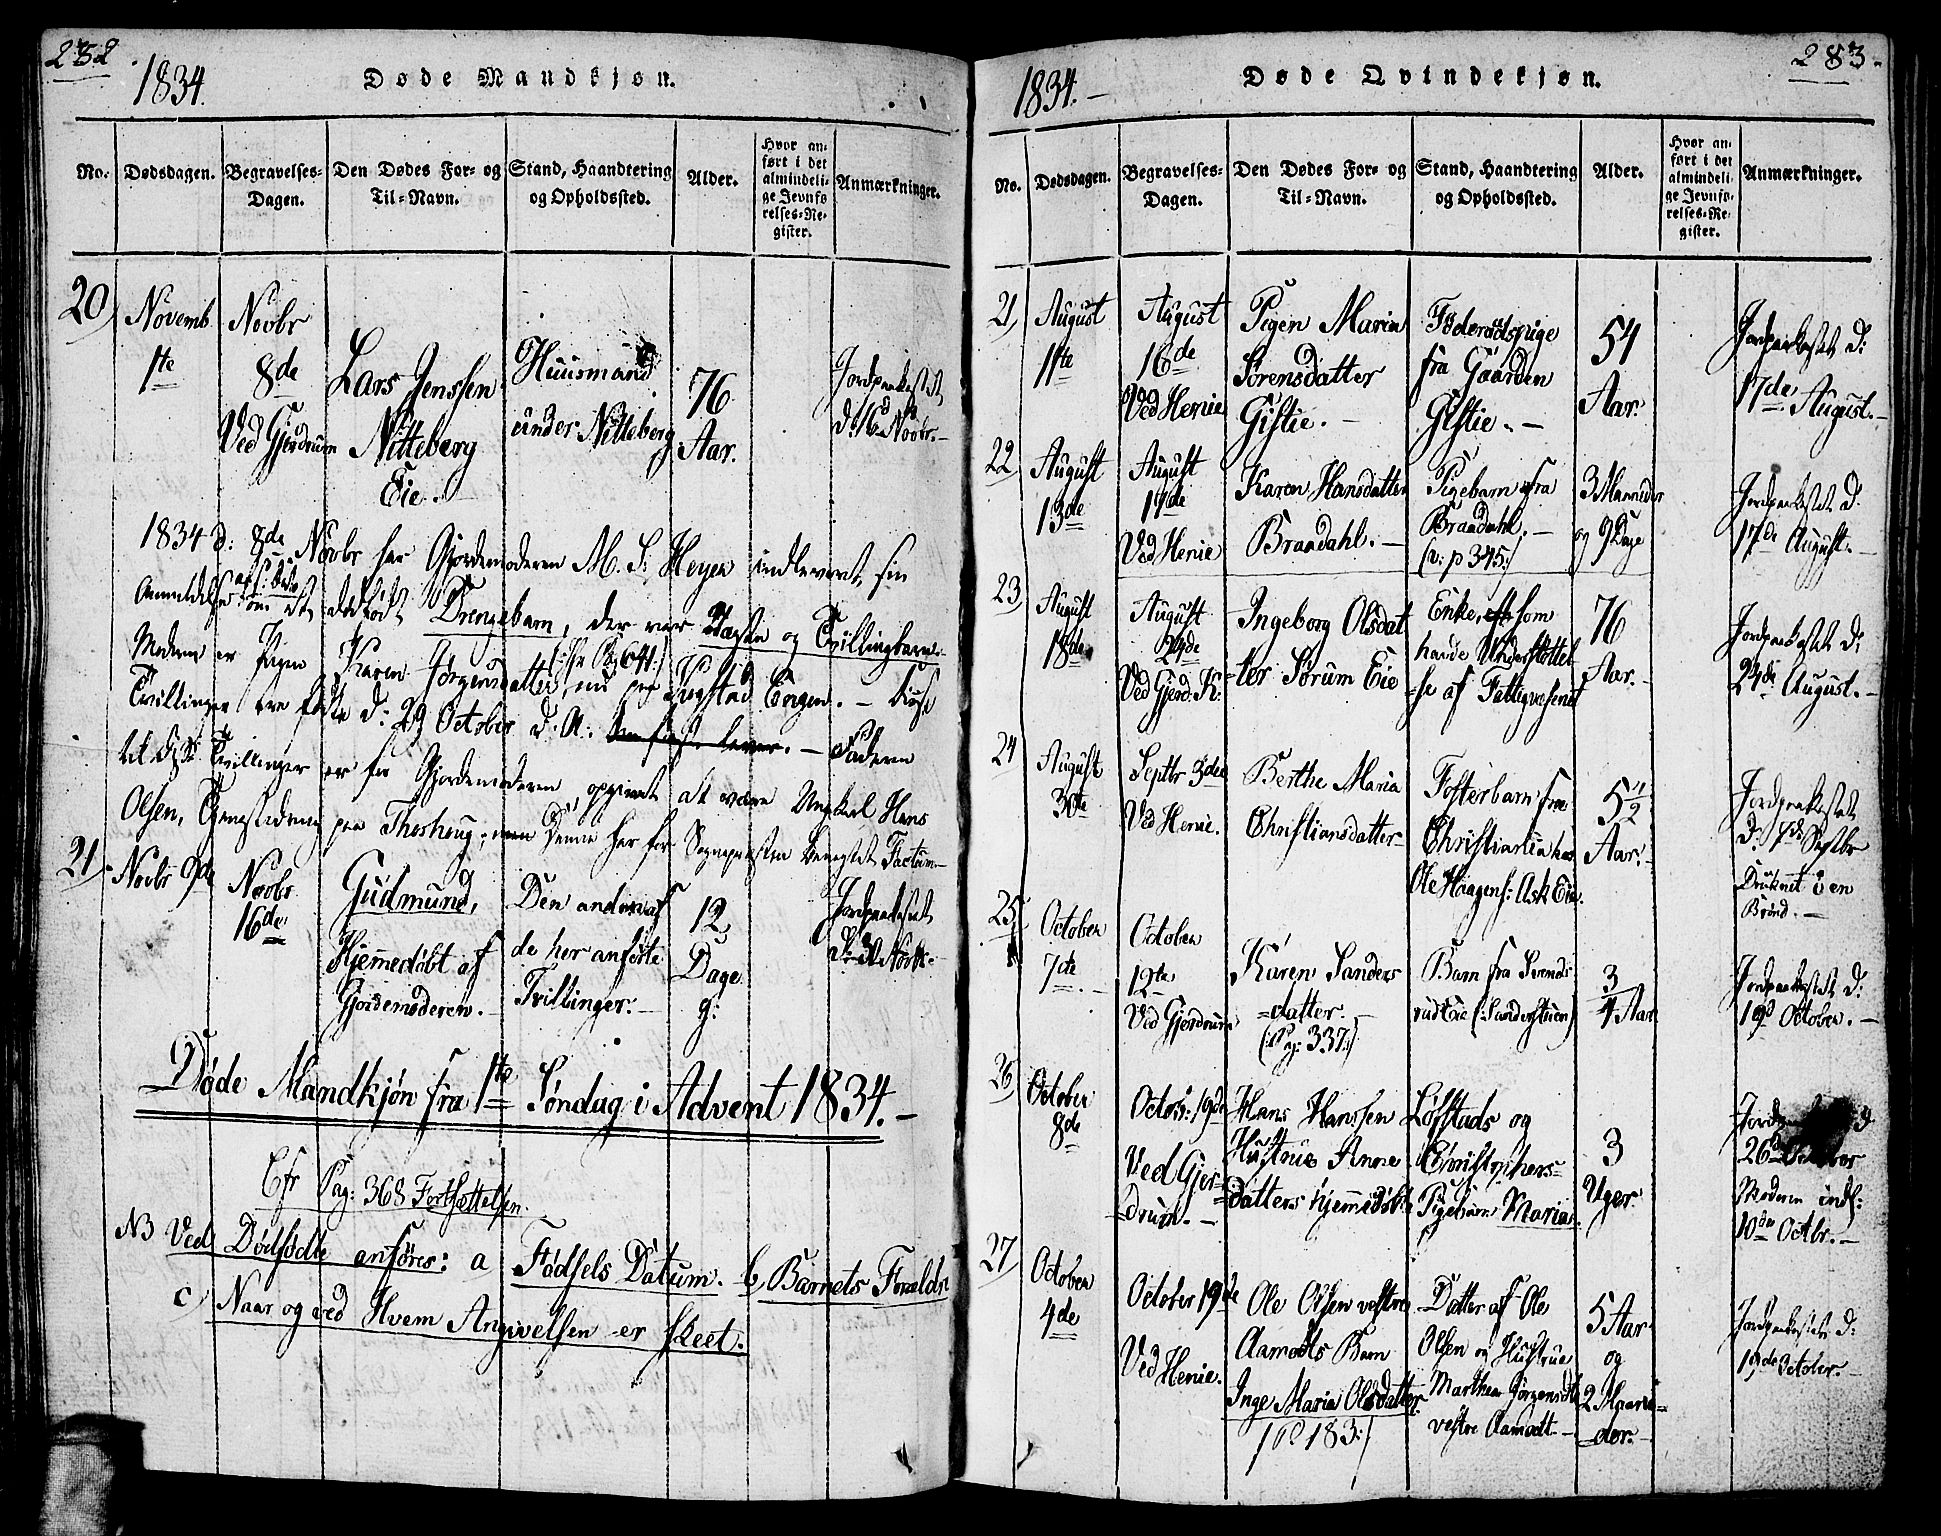 282.
1834.
Døde Mandkjøn.
No.
Dødsdagen.
Begravelses-
Dagen.
Den Dødes For- og
Til-Navn.
Stand, Haandtering
og Opholdssted.
Alder.
Hvor an-
ført i det
almindeli-
ge Jevnfø-
relses-Re-
gister.
Anmærkninger.
20,
Novemb
1te
Novbr
8de
Ved Gjerdrum
Lars Jenssen
Nitteberg
Eie.
Huusmand
under Nitteberg
76
Aar.
Jordpaakastet
d: 16 Novbr.
1834 d: 8de Novbr har Gjordemoderen M. S. Heyer indleveret sin
Anmeldelse om et dødfødt Drengebarn, der var Tvillingbarn.
Moderen er Pigen Karen Jørgensdatter nu paa Engen. -
Tvillinger ere fødte d: 29 October d. A: - Faderen
til Tvillinger er for Gjordemoderen opgivet at være Ungkarl Hans
Olsen, paa ; denne har for Sognepræsten benegtet Factum
21,
Novbr 9de
Novbr
16de
Gudmund,
Hjemmedøbt af
Gjordemoderen.
Den anden af
de her anførte
Tvillinger.
12
Dage
g:
Jordpaakastet
Døde Mandkjøn fra 1te Søndag i Advent 1834.
Cfr Pag: 368 Fortsættelsen.
NB Ved Dødfødte anføres: a Fødsels Datum. b, Barnets Forældre
c, Naar og ved Hvem Angivelsen er skeet.
283.
1834.
Døde Qvindekjøn.
No.
Dødsdagen.
Begravelses-
Dagen.
Den Dødes For- og
Til-Navn.
Stand, Haandtering
og Opholdssted.
Alder.
Hvor an-
ført i det
almindeli-
ge Jevnfø-
relses-Re-
gister.
Anmærkninger.
21,
August
11te
August
16de
Ved Henie
Pigen Maria
Sørensdatter
Gistie.
Føderådspige
fra Gaarden
Gistie.
54
Aar.
Jordpaakastet d:
17de August.
22
August
13de
August
17de
Ved Henie
Karen Hansdatter
Braadahl.
Pigebarn fra
Braadahl.
(v: p 345:)
3 Maaneder
og 9 Dage
Jordpaakastet d:
17de August.
23
August
18de
August
24de
Ved Gjerd. K:
Ingeborg Olsdat
-ter Sørum Eie
Enke, som
havde Understøttel
-se af Fattigvæsenet
76
Aar.
Jordpaakastet d:
24de August.
24
August
30te
Septbr 3die
Ved Henie.
Berthe Maria
Christiansdatter
Fosterbarn fra
Christiania hos
Ole Haagens: Ask Eie.
5 1/2
Aar.
Jordpaakastet
d: 7de Septbr
Druknet i en
Brønd.
25
October
7de
October
12te
Ved Gjerdrum
Karen Sanders
=datter.
(: Pag: 337:)
Barn fra Svends
rud Eie (:Sanderstuen)
3/4 Aar
Jordpaakastet d:
19d October.
26
October
8de
Octob: 19de
Ved Gjer-
=drum.
Hans Hanssen
Hustrue Anne
datters hjemmedøbte
Løfstads og
Christophers-
Pigebarn Maria.
3
Uger.
26de October
Moderen indl:
10de Octbr.
27
October
4de
October 19de
Ved Henie.
Ole Olsen vestre
Aamodts Barn
Inge Maria Olsdatter.
183:)
Datter af Ole
Olsen og Hustrue
Marthea Jørgensdtr
vestre Aamodt
5 Aar
og
2 Maane=
=der.
Jordpaakastet d:
19de October.